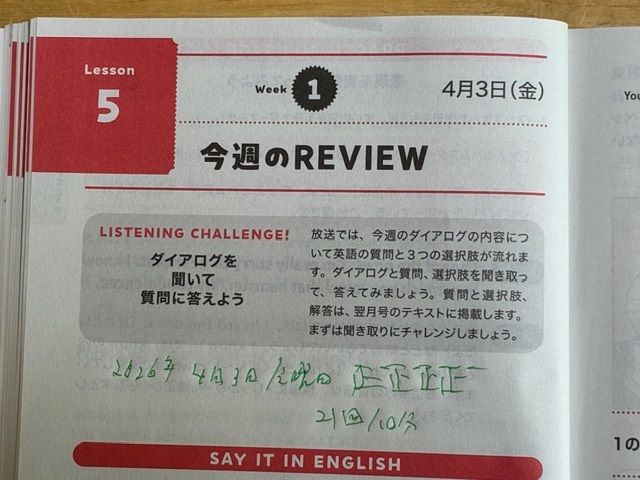 Lesson
5
Week 1
4月3日(金)
今週のREVIEW
LISTENING CHALLENGE!
ダイアログを
聞いて
質問に答えよう
放送では、今週のダイアログの内容につ
いて英語の質問と3つの選択肢が流れま
す。ダイアログと質問、選択肢を聞き取っ
て、答えてみましょう。質問と選択肢、
解答は、翌月号のテキストに掲載します。
まずは聞き取りにチャレンジしましょう。
2026年 4月3日 金曜日 正正正正一
21回/10分
SAY IT IN ENGLISH
You
1の